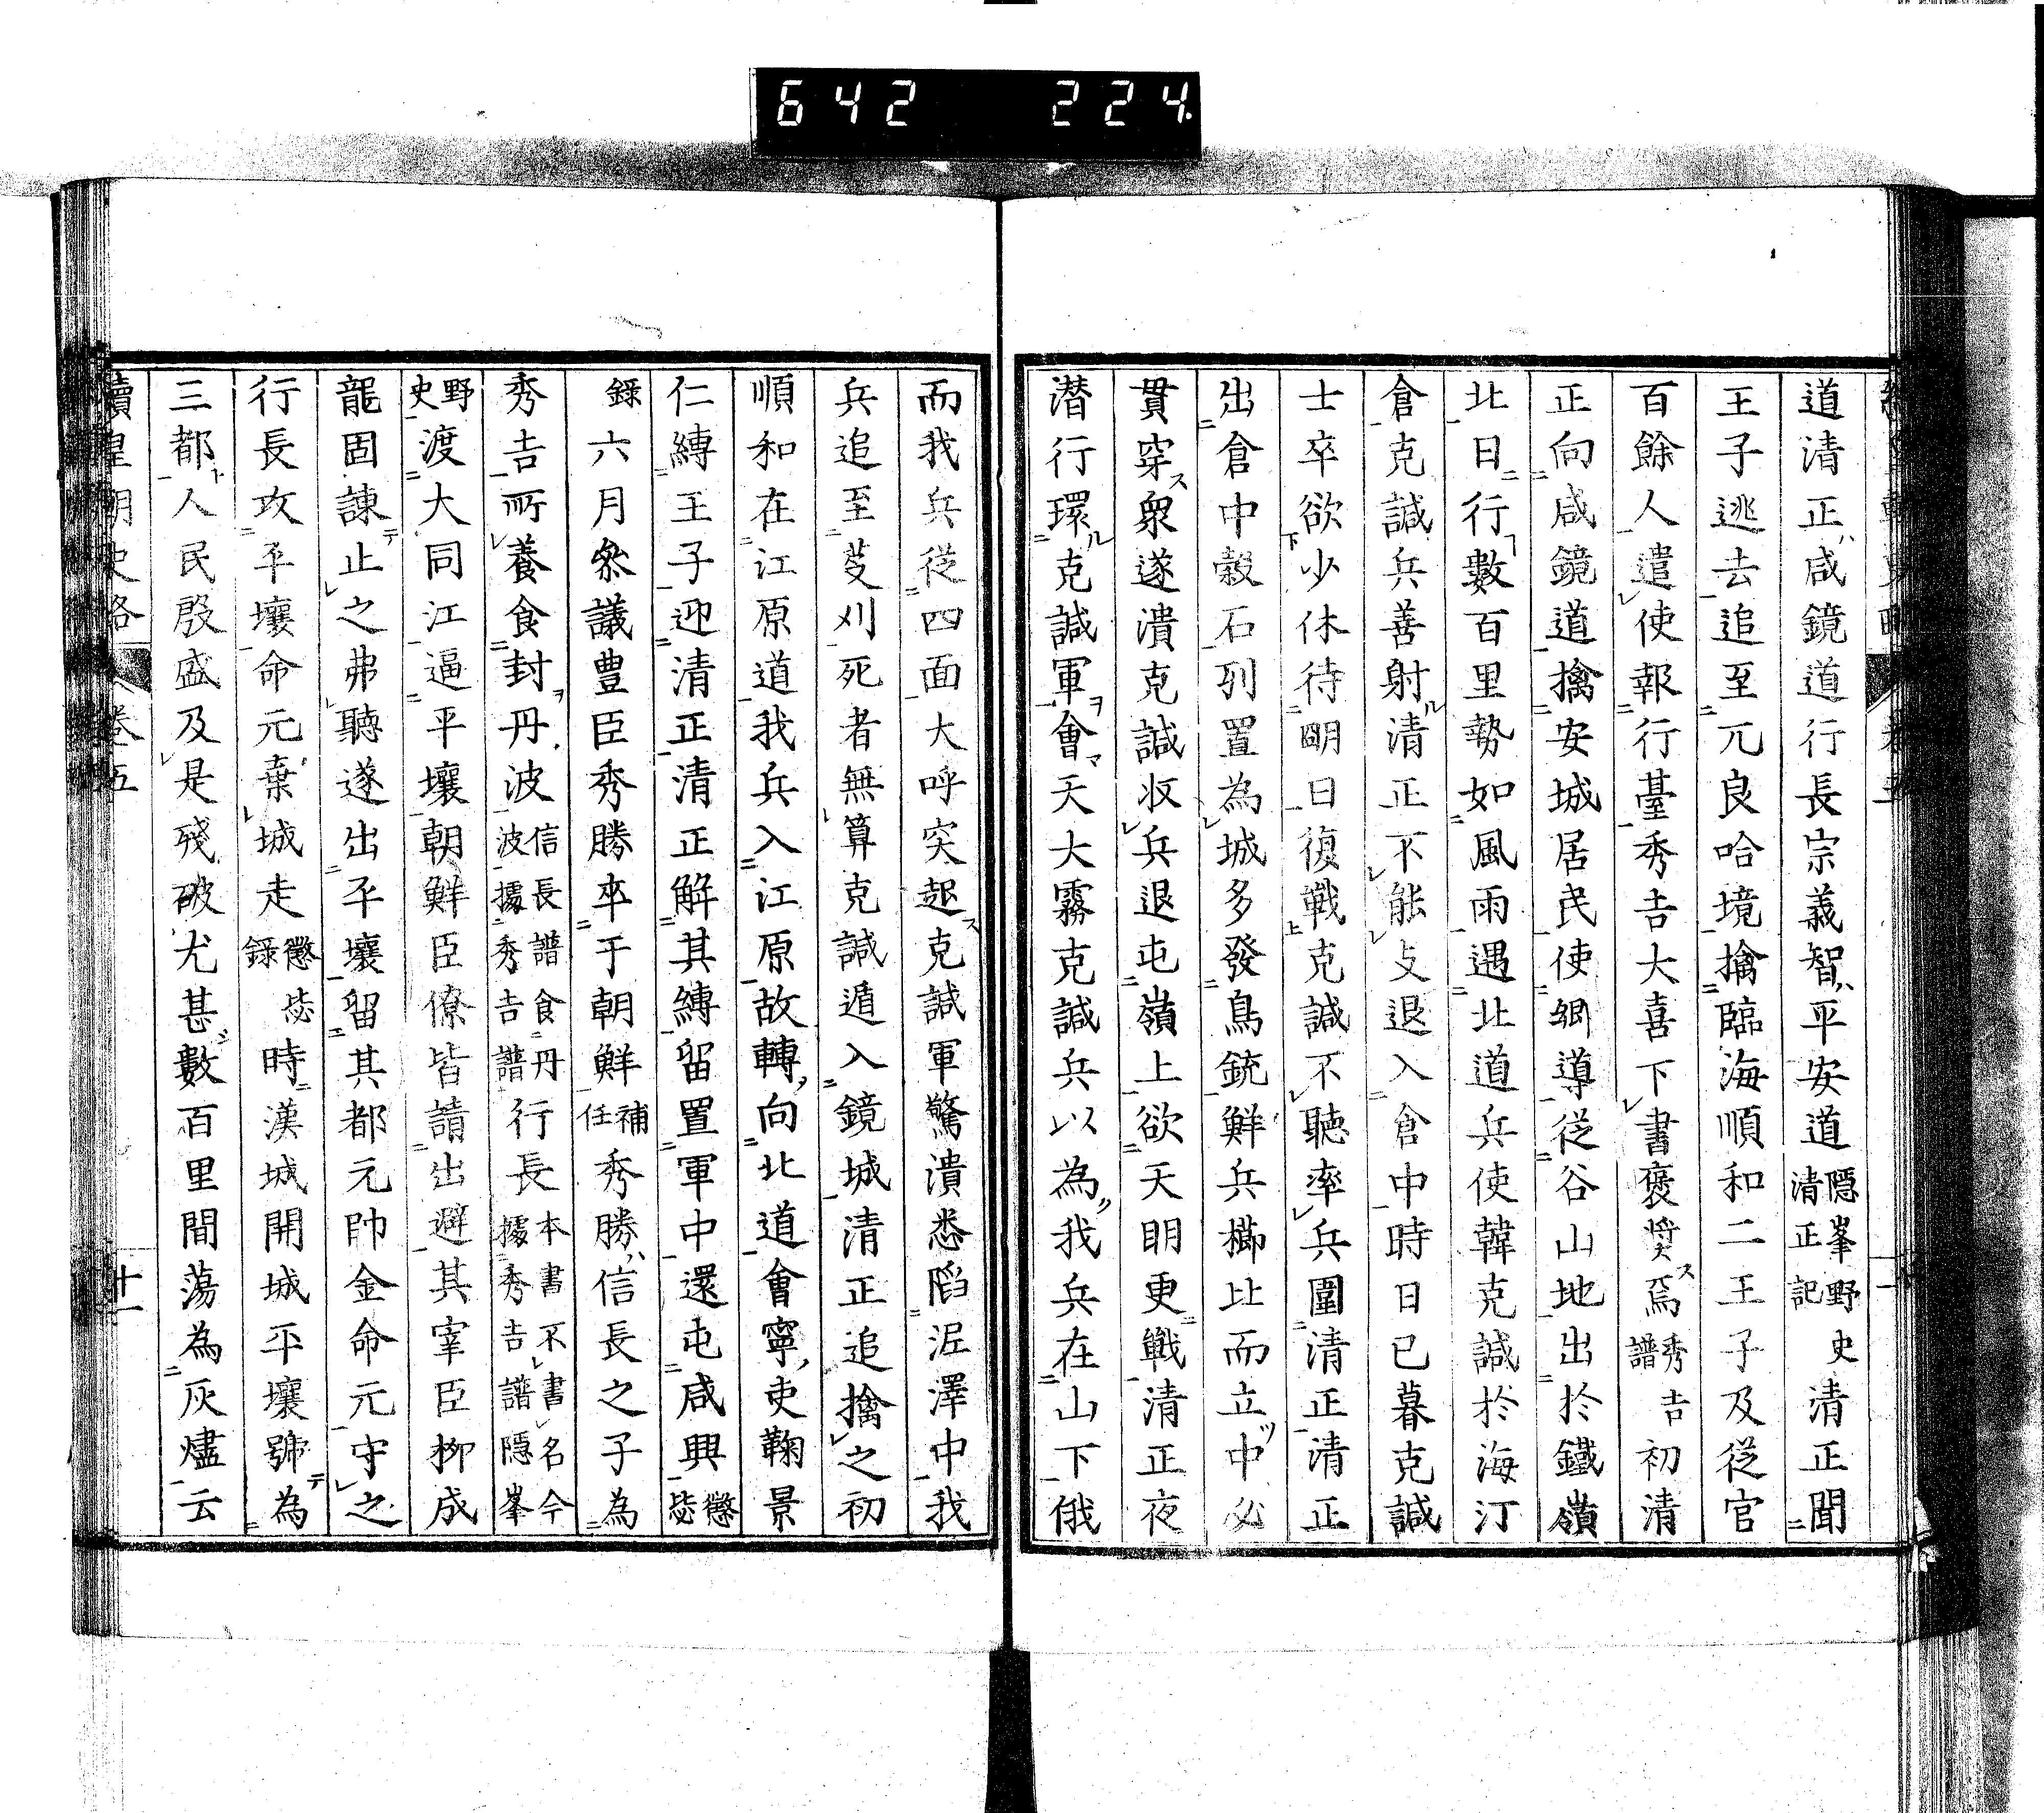 642 224.
道清正ハ咸鏡道行長宗義智ハ平安道隱峯野史清正記清正聞
王子逃去追至元良哈境擒臨海順和二王子及從官
百餘人遣使報行臺秀吉大喜下書褒奨ス焉秀吉譜初清
正向咸鏡道擒安城居民使郷導從谷山地出於鐵嶺
北日行數百里勢如風雨遇北道兵使韓克諴於海汀
倉克諴兵善射ル清正不能支退入倉中時日已暮克諴
士卒欲少休待明日復戰克諴不聽率兵圍清正清正
出倉中穀石列置為城多發鳥銃鮮兵櫛比而立ツ中必
貫穿ス衆遂潰克諴收兵退屯嶺上欲天明更戰清正夜
潜行環ル克諴軍ヲ會マ天大霧克諴兵以為ヲ我兵在山下俄
而我兵從四面大呼突起ス克諴軍驚潰悉陷泥澤中我
兵追至芟刈死者無算克諴遁入鏡城清正追擒之初
順和在江原道我兵入江原故轉向北道會寧吏鞠景
仁縛王子迎清正清正解其縛留置軍中還屯咸興懲毖
錄六月參議豊臣秀勝卒于朝鮮補任秀勝ハ信長之子為
秀吉所養食封ヲ丹波信長譜食丹波據秀吉譜行長本書不書名今據秀吉譜隱峯
野史渡大同江逼平壤朝鮮臣僚皆請出避其宰臣柳成
龍固諫テ止之弗聽遂出平壤留其都元帥金命元守之
行長攻平壤命元棄城走懲毖錄時漢城開城平壤號テ為
三都ト人民殷盛及是殘破尤甚シ數百里間蕩為灰燼云
續皇朝史略 卷五 十一